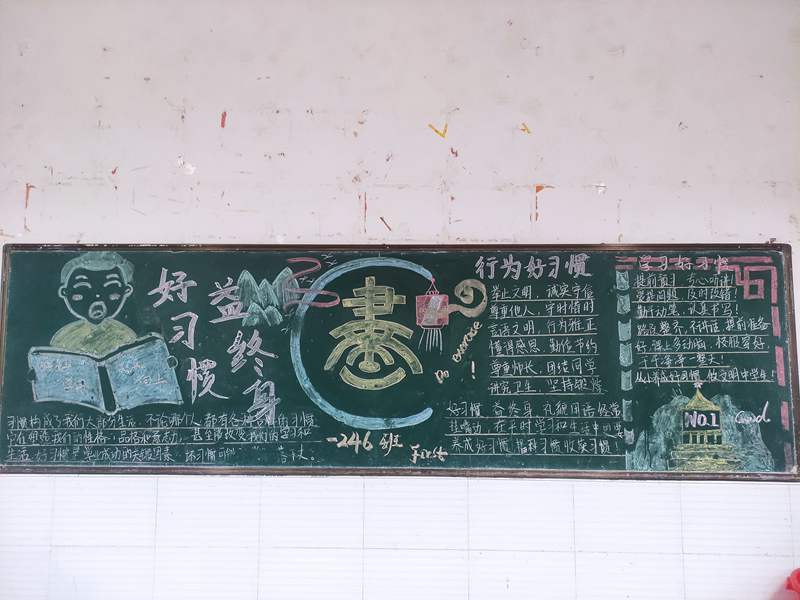 好习惯
益终身
习惯构成了我们大部分生活,不论那个人,都有各种各样的习惯
它们塑造我们的性格、品格和素养,甚至能改变我们的学习和
生活,好习惯是事业成功的关键因素,坏习惯可
書
Do exercise!
246班
First
行为好习惯
举止文明,诚实守信
尊重他人,守时惜时
言语文明,行为雅正
懂得感恩,勤俭节约
尊重师长,团结同学
讲究卫生,坚持锻炼
好习惯,益终身
在平时学习和生活中
养成好习惯,收获习惯
学习好习惯
提前预习,专心听讲!
勤于动笔,认真书写!
提前准备
干干净净一整天!
从小养成好习惯,做文明中学生!
NO.1
Good